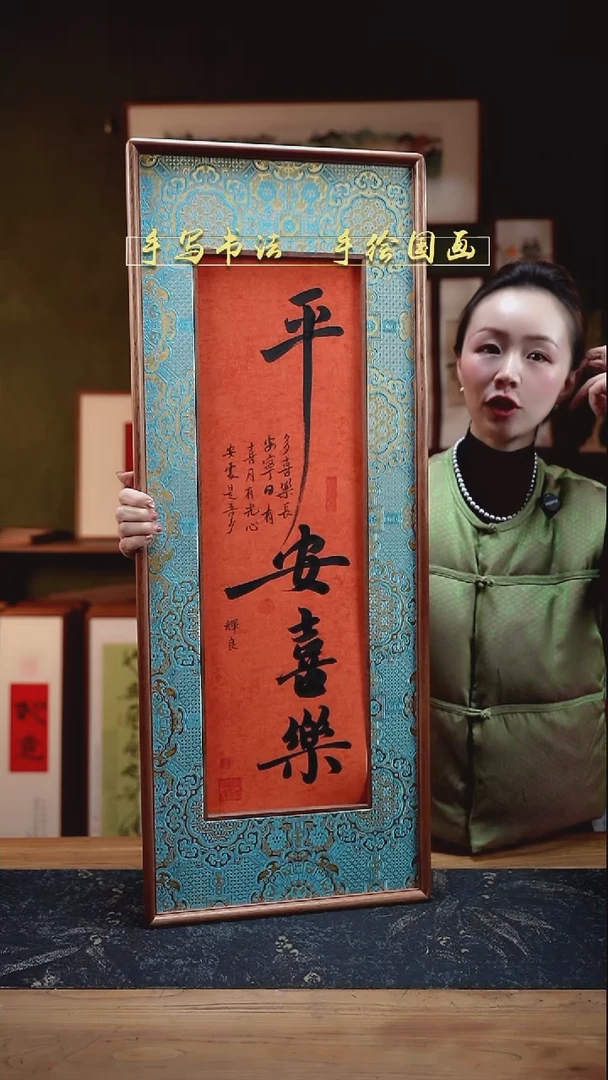 手写书法 手绘国画
平安喜樂
多喜樂長
安寧日有
喜月有光心
安處是吾乡
輝良